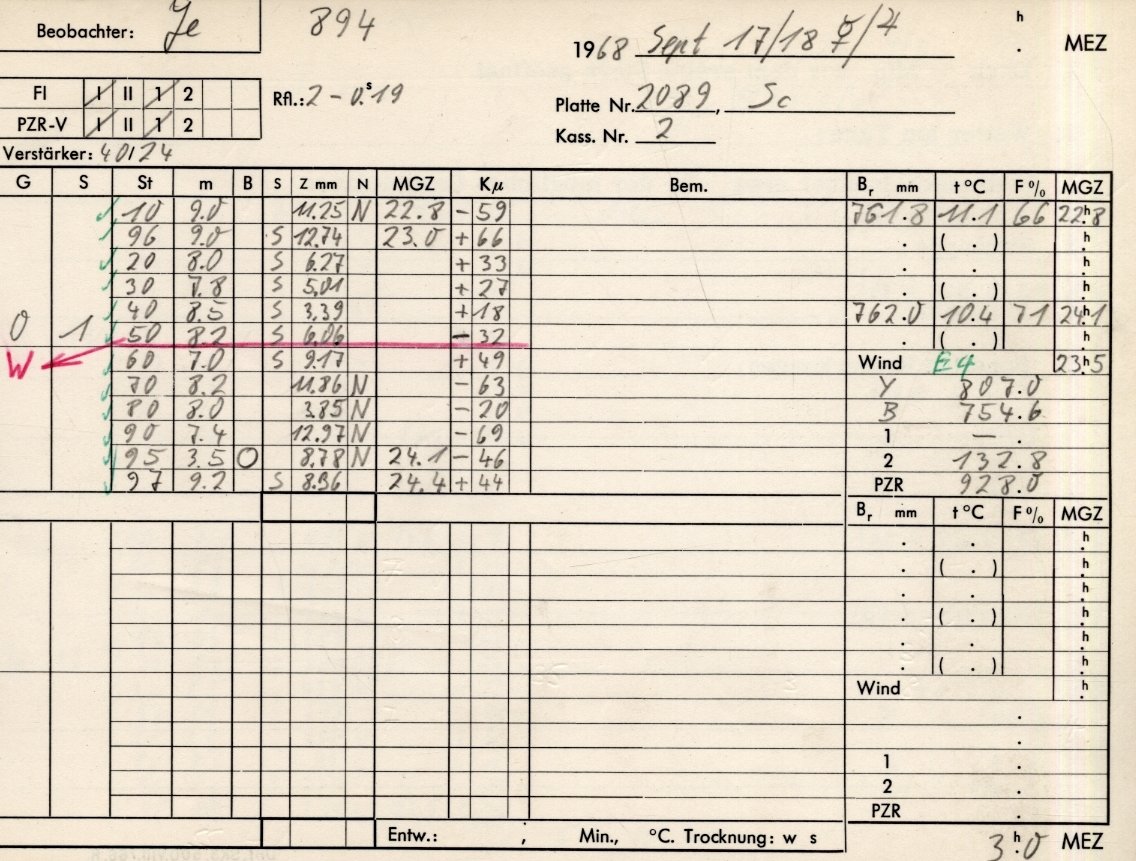 Beobachter: Je 894 h
1968 Sept 17/18 ☿/♃ . MEZ
FI I II 1 2 Rfl.: 2 - 0.ˢ19
PZR-V I II 1 2 Platte Nr. 2089, Sc
Kass. Nr. 2
Verstärker: 40/24
G S St m B S Z mm N MGZ Kμ Bem. Bᵣ mm t °C F % MGZ
✓ 10 9.0 11.25 N 22.8 - 59 761.8 11.1 66 22ʰ.8
✓ 96 9.0 S 12.74 23.0 + 66 . ( . ) ʰ.
✓ 20 8.0 S 6.27 + 33 . . ʰ.
✓ 30 7.8 S 5.01 + 27 . ( . ) ʰ.
✓ 40 8.5 S 3.39 + 18 762.0 10.4 71 24ʰ.1
0 1 ✓ 50 8.2 S 6.06 - 32 . ( . ) ʰ.
W ✓ 60 7.0 S 9.17 + 49 Wind E4 23ʰ.5
✓ 70 8.2 11.86 N - 63 Y 807.0
✓ 80 8.0 3.85 N - 20 B 754.6
✓ 90 7.4 12.97 N - 69 1 — .
✓ 95 3.5 O 8.78 N 24.1 - 46 2 132.8
✓ 97 9.2 S 8.36 24.4 + 44 PZR 928.0
Bᵣ mm t °C F % MGZ
. . ʰ.
. ( . ) ʰ.
. . ʰ.
. ( . ) ʰ.
. . ʰ.
. ( . ) ʰ.
Wind ʰ.
.
.
1 .
2 .
PZR .
Entw.: , Min., °C. Trocknung: w s
3ʰ.0 MEZ